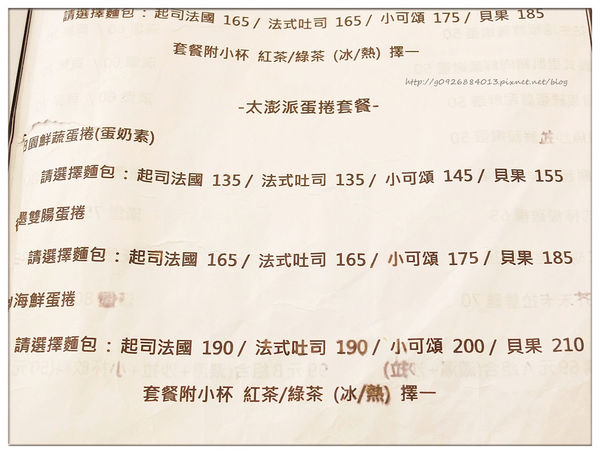 請選擇麵包：起司法國 165/ 法式吐司 165/ 小可頌 175/ 貝果 185
套餐附小杯 紅茶/綠茶 (冰/熱) 擇一
http://g0926884013.pixnet.net/blog
-太澎派蛋捲套餐-
園鮮蔬蛋捲(蛋奶素)
請選擇麵包：起司法國 135/ 法式吐司 135/ 小可頌 145/ 貝果 155
雙腸蛋捲
請選擇麵包：起司法國 165/ 法式吐司 165/ 小可頌 175/ 貝果 185
海鮮蛋捲
請選擇麵包：起司法國 190/ 法式吐司 190/ 小可頌 200/ 貝果 210
套餐附小杯 紅茶/綠茶 (冰/熱) 擇一